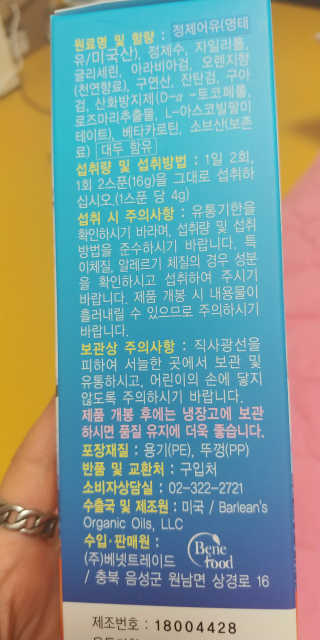 원료명 및 함량 : 정제어유(명태
유/미국산), 정제수, 자일리톨,
글리세린, 아라비아검, 오렌지향
(천연향료), 구연산, 잔탄검, 구아
검, 산화방지제(D-α-토코페롤,
로즈마리추출물, L-아스코빌팔미
테이트), 베타카로틴, 소브산(보존
료) 대두 함유
섭취량 및 섭취방법 : 1일 2회,
1회 2스푼(16g)을 그대로 섭취하
십시오.(1스푼 당 4g)
섭취 시 주의사항 : 유통기한을
확인하시기 바라며, 섭취량 및 섭취
방법을 준수하시기 바랍니다. 특
이체질, 알레르기 체질의 경우 성분
을 확인하시고 섭취하여 주시기
바랍니다. 제품 개봉 시 내용물이
흘러내릴 수 있으므로 주의하시기
바랍니다.
보관상 주의사항 : 직사광선을
피하여 서늘한 곳에서 보관 및
유통하시고, 어린이의 손에 닿지
않도록 주의하시기 바랍니다.
제품 개봉 후에는 냉장고에 보관
하시면 품질 유지에 더욱 좋습니다.
포장재질 : 용기(PE), 뚜껑(PP)
반품 및 교환처 : 구입처
소비자상담실 : 02-322-2721
수출국 및 제조원 : 미국 / Barlean's
Organic Oils, LLC
수입·판매원 :
(주)베넷트레이드
/ 충북 음성군 원남면 상경로 16
Bene
Food
제조번호 : 18004428